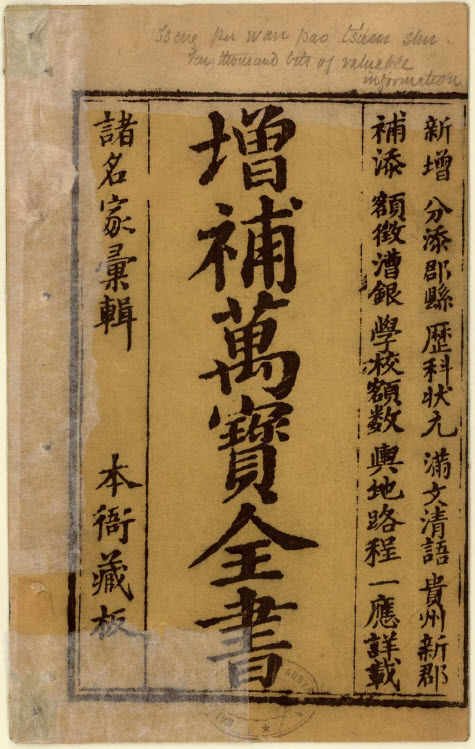 Tseng pu wan pao ts'uen shu
Ten thousand bits of valuable
information
新增 分添郡縣 歷科狀元 滿文清語 貴州新郡
補添 額徵漕銀 學校額数 輿地路程 一應詳載
增補萬寶全書
諸名家彙輯 本衙藏板